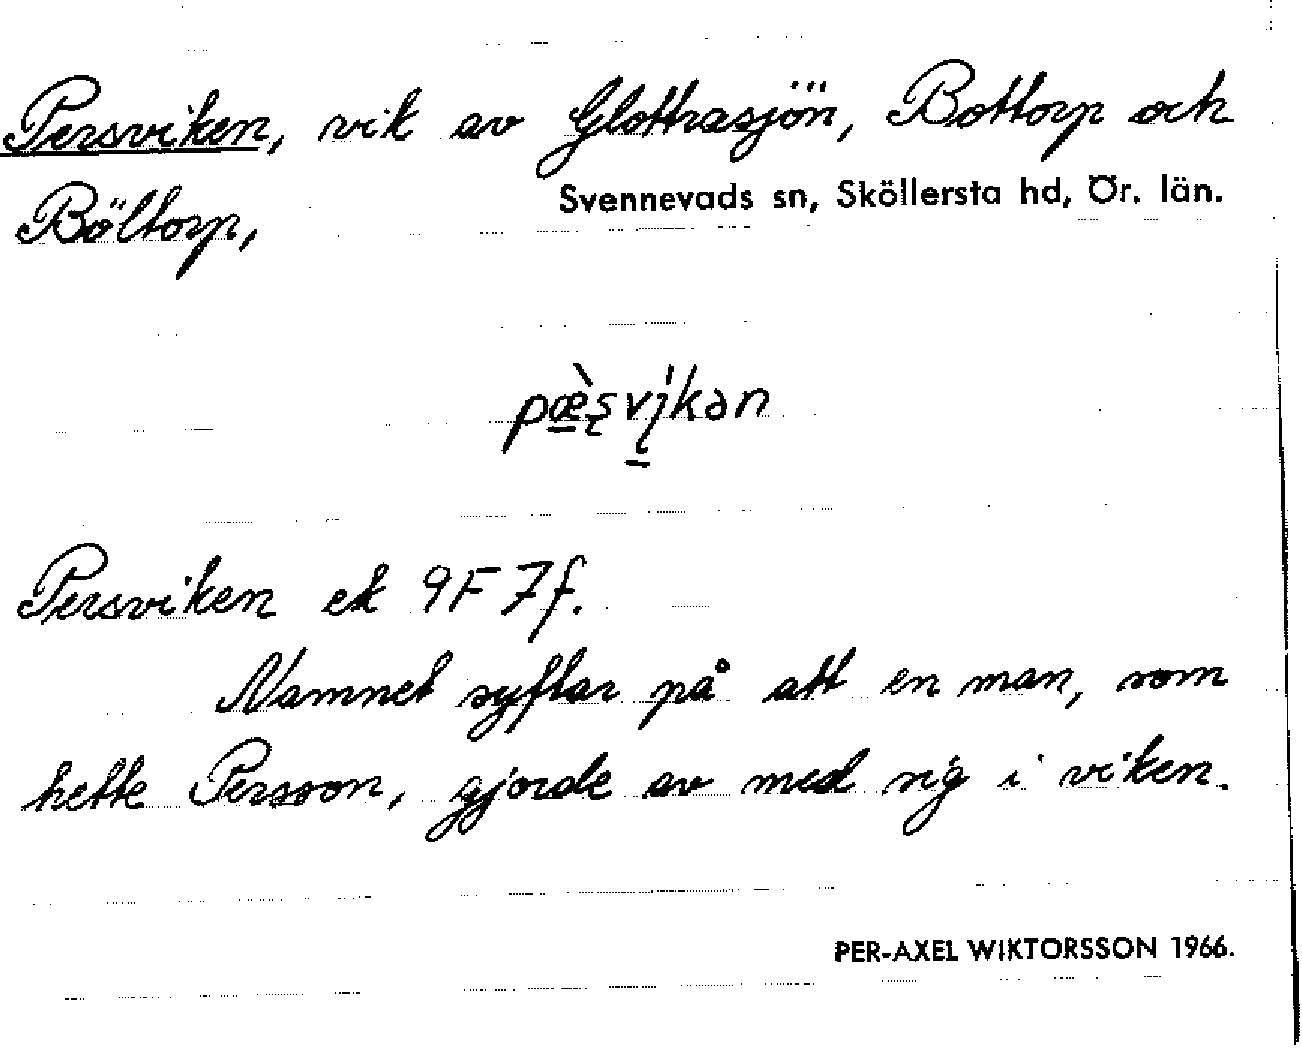 Persviken, vik av Glottrasjön, Bottorp och
Böltorp,
Svennevads sn, Sköllersta hd, Ör. län.
pæ̀svi̍kən
Persviken ek 9F 7f.
Namnet syftar på att en man, som
hette Persson, gjorde av med sig i viken.
PER-AXEL WIKTORSSON 1966.